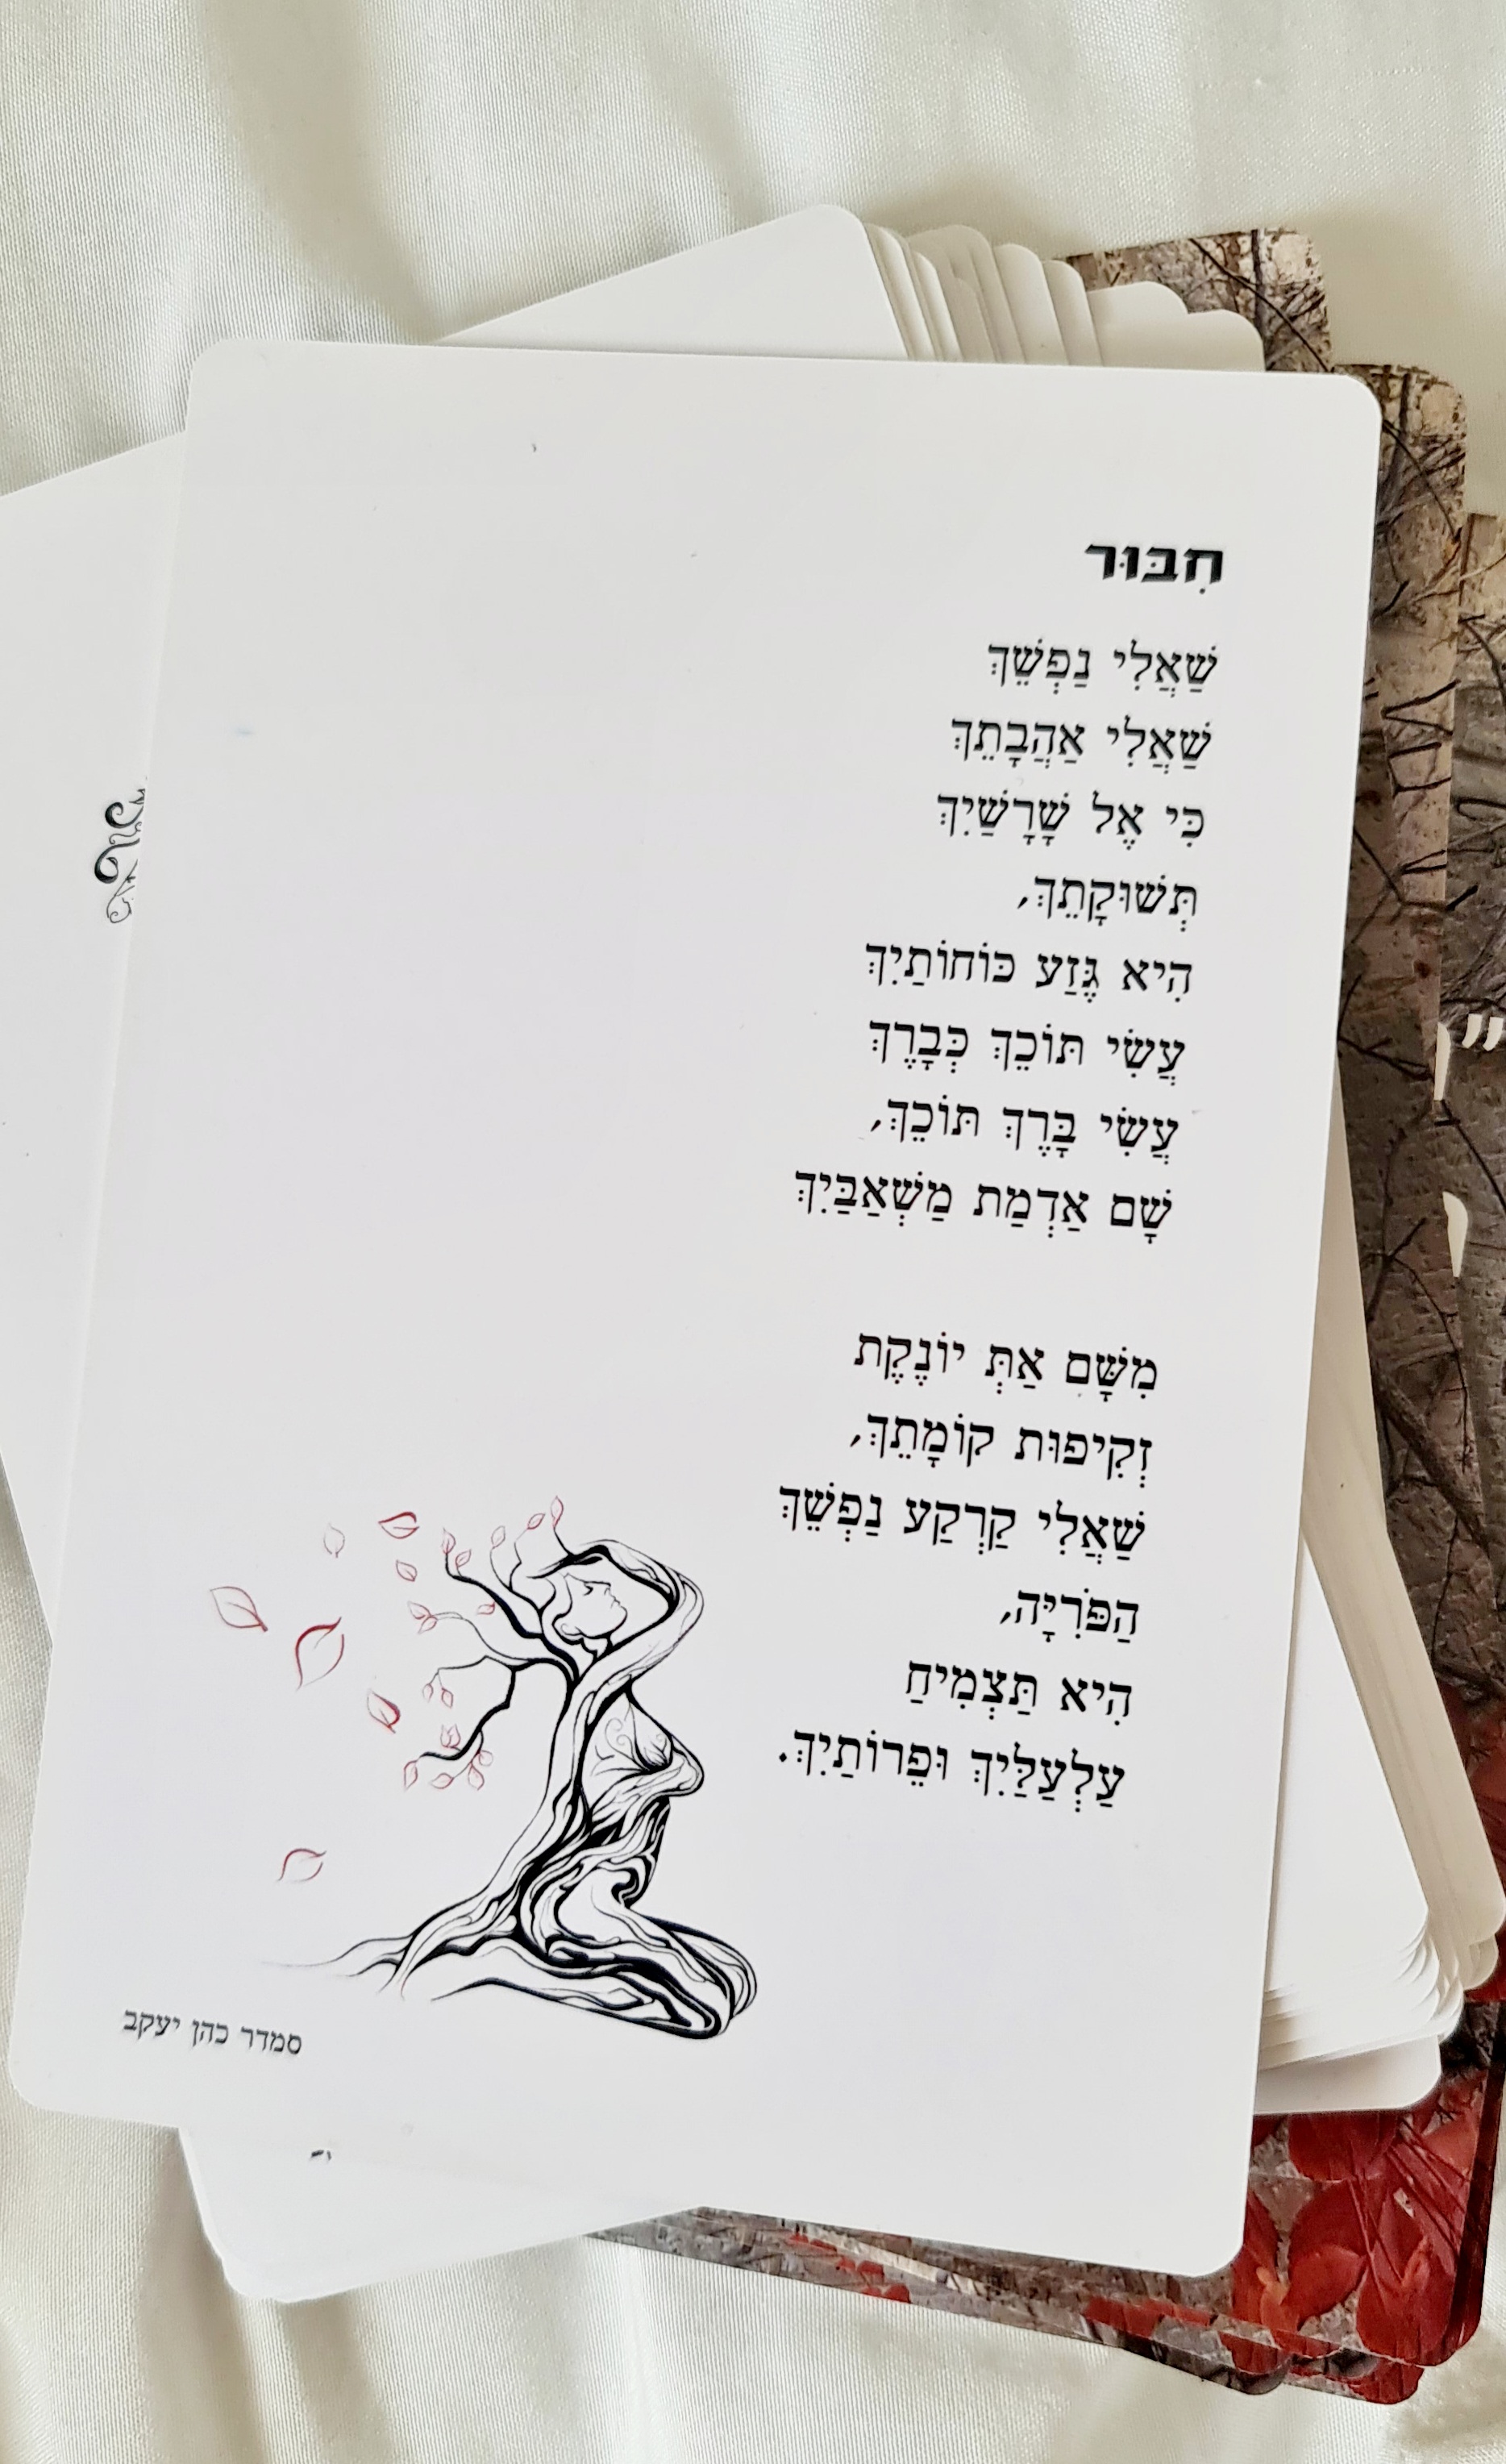 חִבּוּר
שַׁאֲלִי נַפְשֵׁךְ
שַׁאֲלִי אַהֲבָתֵךְ
כִּי אֶל שָׁרָשַׁיִךְ
תְּשׁוּקָתֵךְ,
הִיא גֶּזַע כּוֹחוֹתַיִךְ
עֲשִׂי תּוֹכֵךְ כְּבָרֶךְ
עֲשִׂי בָּרֶךְ תּוֹכֵךְ,
שָׁם אַדְמַת מַשְׁאַבַּיִךְ
מִשָּׁם אַתְּ יוֹנֶקֶת
זְקִיפוּת קוֹמָתֵךְ,
שַׁאֲלִי קַרְקַע נַפְשֵׁךְ
הַפֹּרִיָּה,
הִיא תַּצְמִיחַ
עַלְעַלַּיִךְ וּפֵרוֹתַיִךְ.
סמדר כהן יעקב